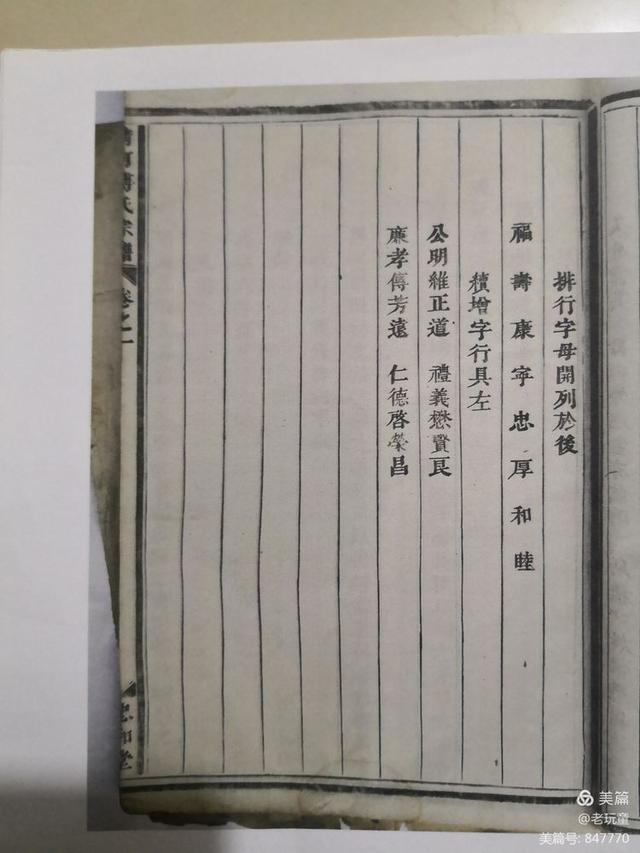 排行字母開列於後
福壽康寧忠厚和睦
續增字行具左
公明維正道 禮義懋賢良
廉孝傳芳遠 仁德啓榮昌
清河傅氏宗譜 卷之一
忠和堂
美篇
@老玩童
美篇号: 847770